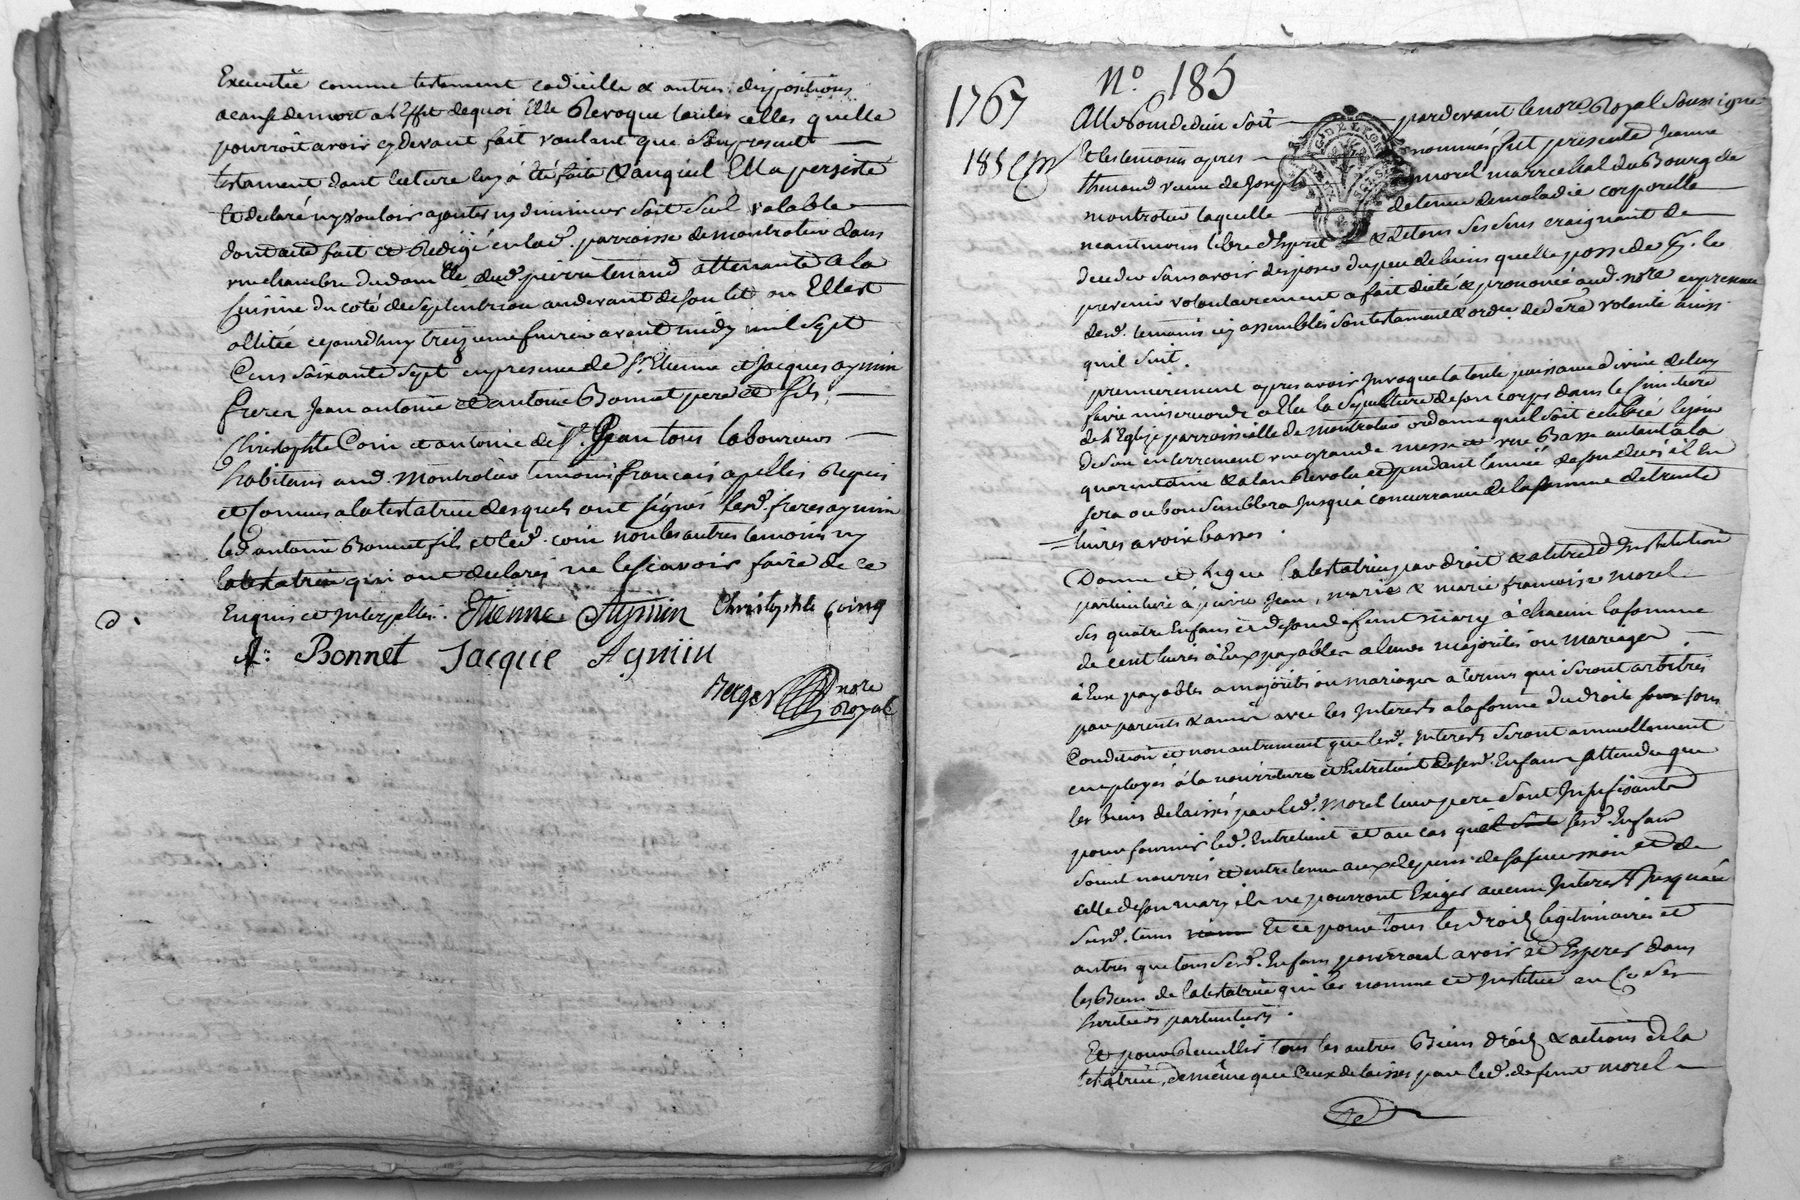 Executée comme testament codicille & autres dispositions
a cause de mort a l'Effet de quoi Elle Revoque toutes celles quelle
pourroit avoir cy devant fait voulant que Son present
testament dont lecture luy à été faite & auquel Ella persisté
et declaré ny vouloir ajouter ny diminuer Soit Seul valable
dont acte fait et Redigé en lad. parroisse de montrotier dans
une chambre du dom.lle dud. pierre thenand attenante a la
Cuisine du coté de Septentrion au devant de son lit ou Ellest
allitée cejourdhuy treizieme fevrier avant midy mil Sept
Cens Soixante Sept en presence de Sr. Etienne et Jacques aymin
freres Jean antoine et antoine Bonnet pere et fils,
Christophle Coin et antoine de St. Jean tous laboureurs
habitans aud. Montrotier temoins francais apellés Requis
et Connus a la testatrice desquels ont Signés lesd. freres aymin
led. antoine Bonnet fils et led. coin non les autres temoins ny
la testatrice qui ont declarés ne le scavoir faire de ce
Enquis et Interpellés. Etienne Aymin Christophle coing
A: Bonnet Jacque Aymin
Berger nore
Royal
1767 No. 185
185
Au Nom de dieu Soit pardevant le nore. Royal Soussigné
Et les temoins apres nommés fut presente Jeanne
thenand veuve de Joseph morel marrechal du Bourg de
montrotier laquelle detenue de maladie corporelle
neantmoins libre d'Esprit & de tous Ses Sens craignant de
deceder Sans avoir disposer du peu de biens quelle possede Et. le
prevenir volontairement a fait dicté & prononcé aud. nore en presence
desd. temoins cy assemblés Son testament & ordre. de dere. volonté ainsi
quil Suit.
premierement apres avoir Invoqué la toute puissance divine de luy
faire misericorde a Elu la Sepulture de son corps dans le Cimetiere
de l'Eglize parroissialle de Montrotier ordonne quil Soit celebré le jour
de Son enterrement une grande messe et une Basse autant a la
quarantaine & a l'an Revolu et pendant lannée de son decés il En
Sera ou bon Semblera Jusqu'a concurrance de la Somme de trente
livres a voix basses.
Donne et legue la testatrice par droit & a titre d'Institution
particuliere à pierre Jean, marie & marie francoise morel
Ses quatre Enfans et de son defunt mary à chacun la Somme
de cent livres à Eux payables a leurs majorités ou mariages
à Eux payables a majorités ou mariages a termes qui Seront arbitrés
par parents & amis avec les Interests a la forme du droit sous sous
Condition et non autrement que lesd. Interests Seront annuellement
employés à la nourriture et Entretient desd. Enfans Attendu que
les biens delaissés par led. Morel leur pere Sont Insufisants
pour fournir led. Entretient et au cas qu'il Soit lesd. Enfans
Soint nourris et entretenus aux depens de Sa Succession et de
celle de Son mary ils ne pourront Exiger aucun Interest Jusqu'au
Susd. tems Et ce pour tous les droits legitimaires et
autres que tous Sesd. Enfans pouvroient avoir et Esperer dans
les Biens de la testatrice qui les nomme et Institue en Ce Ses
heritiers particuliers.
Et pour Recueillir tous les autres Biens droits & actions de la
testatrice, de même que Ceux delaisses par led. defunt morel